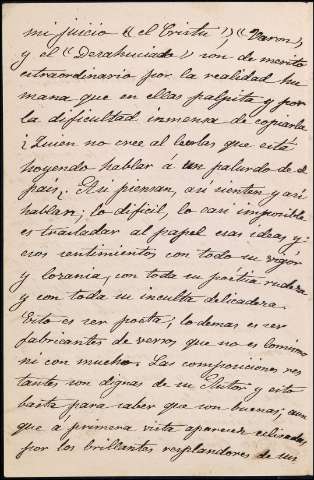 mi juicio "el Cristu", "Varon",
y el "Desahuciado" son de merito
extraordinario por la realidad hu
mana que en ellas palpita y por
la dificultad inmensa de copiarla
¿Quien no cree al leerlas que está
hoyendo hablar á un palurdo de
pais? Asi piensan, asi sienten y asi
hablan; lo dificil, lo casi imposible
es trasladar al papel esas ideas y
esos sentimientos con todo su vigór
y lozania, con toda su poética rudeza
y con toda su inculta delicadeza.
Esto es ser poeta; lo demas es ser
fabricantes de versos que no es lo mismo
ni con mucho. Las composiciones res
tantes son dignas de su Autor y esto
basta para saber que son buenas; aun
que á primera vista aparecen eclipsadas
por los brillantes resplandores de sus